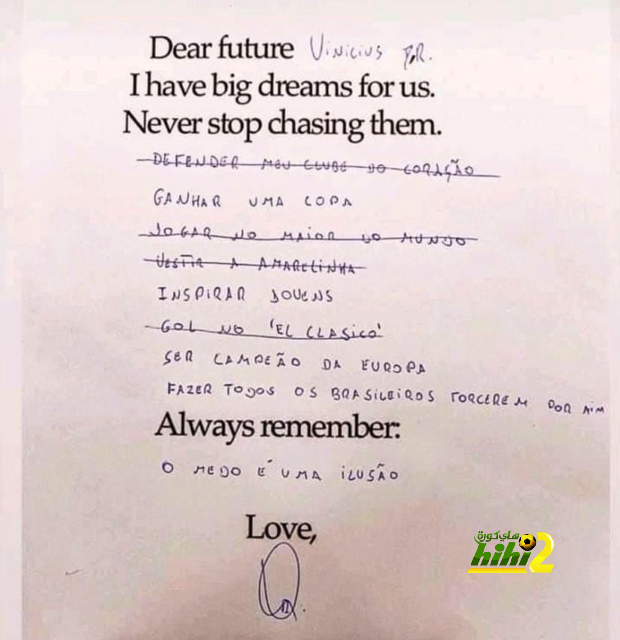 Dear future Vinicius JR.
I have big dreams for us.
Never stop chasing them.
DEFENDER MEU CLUBE DO CORAÇÃO
GANHAR UMA COPA
JOGAR NO MAIOR DO MUNDO
VESTIR A AMARELINHA
INSPIRAR JOVENS
GOL NO 'EL CLASICO'
SER CAMPEÃO DA EUROPA
FAZER TODOS OS BRASILEIROS TORCEREM POR MIM
Always remember:
O MEDO É UMA ILUSÃO
Love,
هاي كورة
hihi2